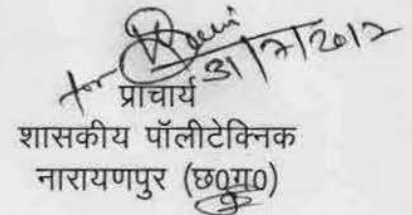 for
31/7/2017
प्राचार्य
शासकीय पॉलीटेक्निक
नारायणपुर (छ0ग0)